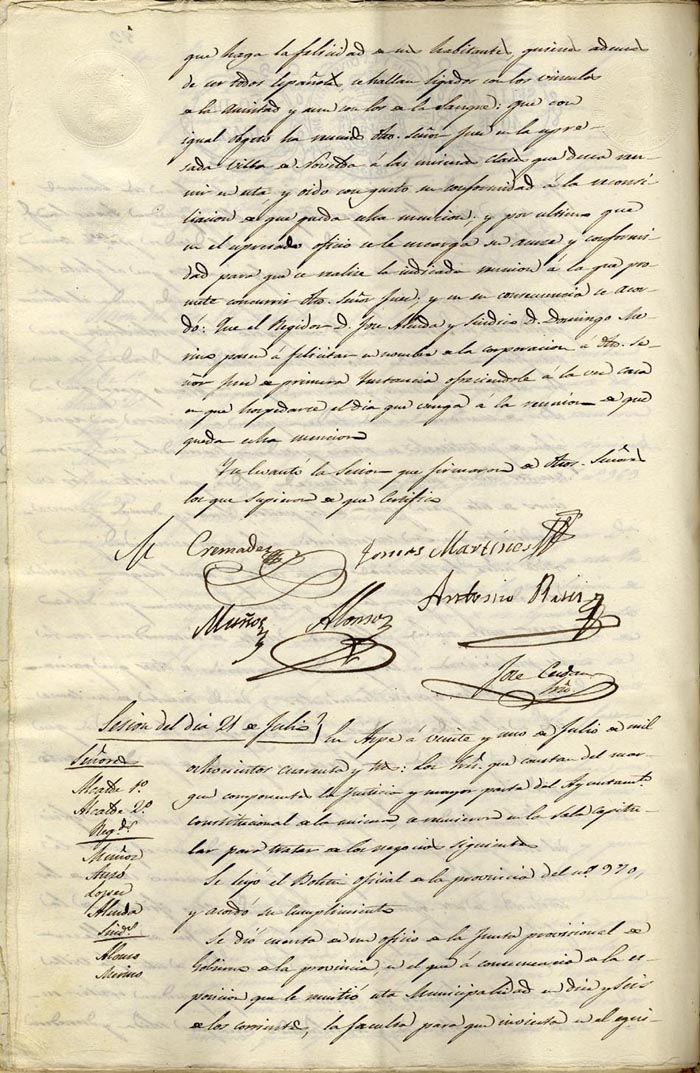 que haga la felicidad de sus habitantes, quienes ademas
de ser todos Españoles, se hallan ligados con los vinculos
de la amistad y aun con los de la sangre: que con
igual objeto ha reunido dho. Señor Juez en la espre-
sada Villa de Novelda á las mismas clases que desea reu-
nir en esta y oido con gusto su conformidad á la reconci-
liacion de que queda hecha mencion; y por ultimo que
en el espresado oficio se le encarga su and conformi-
dad para que se realize la indicada reunion á la que pro-
mete concurrir dho. Señor Juez, y en su consecuencia se acor-
dó: Que el Regidor D. Jose Almda y Sindico D. Domingo Me-
rino pasen á felicitar en nombre de la corporacion á dho. Se-
ñor Juez de primera Instancia ofreciendole á la vez casa
en que hospedarse el dia que venga á la reunion de que
queda hecha mencion
Y se levantó la Sesion que firmaron de dhos. Señores
los que supieron de que Certifico
Cremades Tomas Martines
Muñoz Alonso Antonio
Jose
Srio.
Sesion del dia 21 de Julio
En Aspe á veinte y uno de Julio de mil
Señores
ochocientos cuarenta y tres: Los Sres. que constan del mar-
Alcalde 1º
gen que componen la Justicia y mayor parte del Ayuntamto.
Alcalde 2º
constitucional de la misma, se reunieron en la sala capitu-
Regs.
lar para tratar de los negocios siguientes
Muñoz
Se leyó el Boletin oficial de la provincia del nº 970,
Lopez
y acordó su cumplimiento
Almda
Sinds.
Se dió cuenta de un oficio de la Junta provisional de
Alonso
Gobierno de la provincia en el que á consecuencia de la es-
Merino
posicion que le remitió esta Municipalidad en dia y seis
de los corrientes, la faculta para que invierta en el equi-